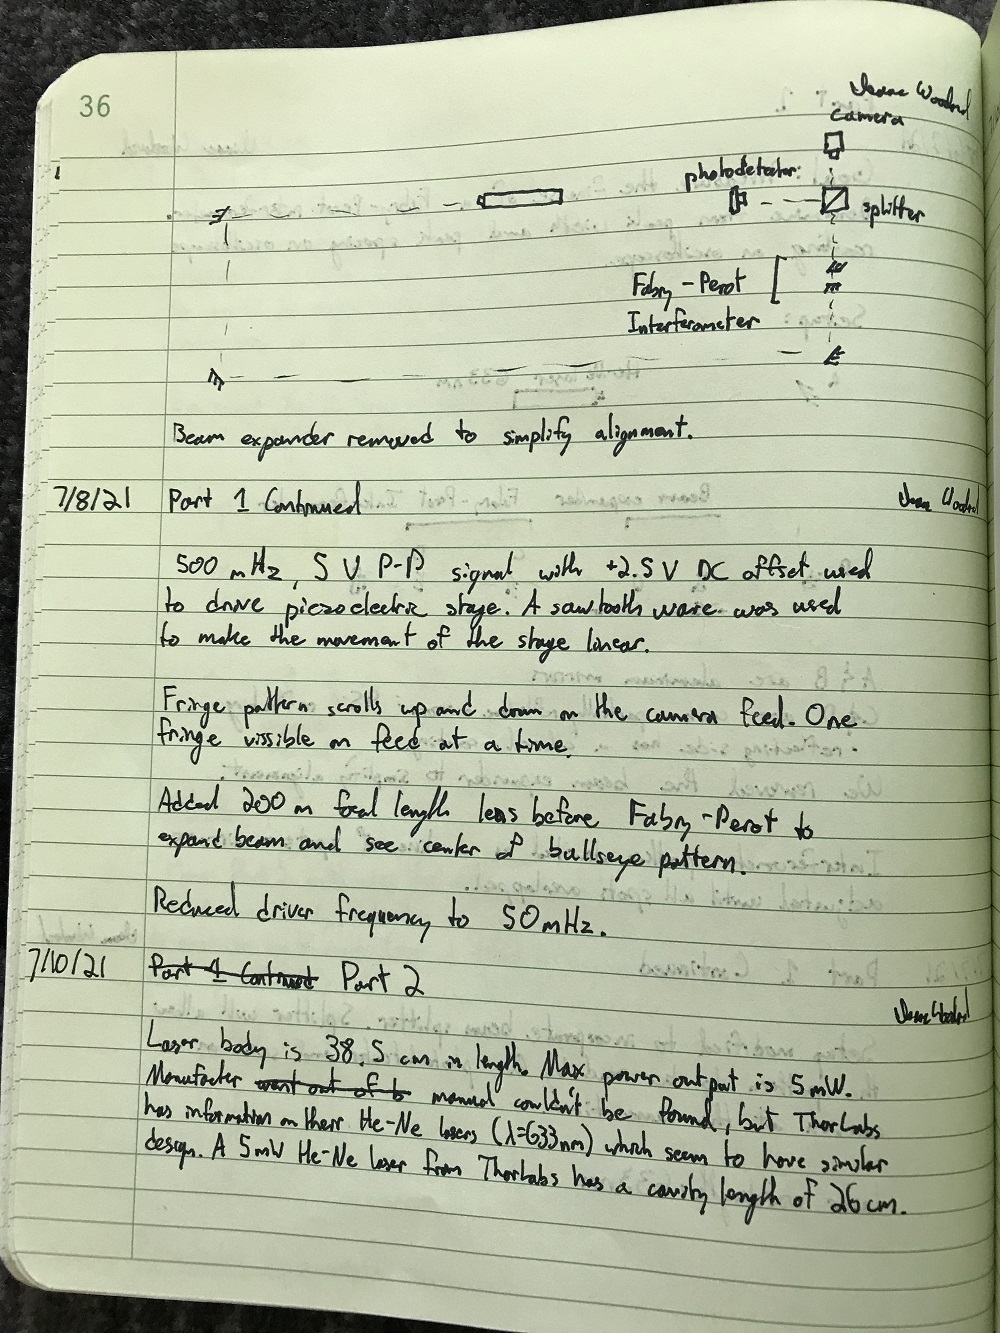 36
camera
photodetector:
splitter
Fabry-Perot
Interferometer
Beam expander removed to simplify alignment.
7/8/21 Part 1 Continued
500 mHz, 5 V P-P signal with +2.5 V DC offset used
to drive piezoelectric stage. A sawtooth wave was used
to make the movement of the stage linear.
Fringe pattern scrolls up and down on the camera feed. One
fringe vissible on feed at a time.
Added 200 m focal length lens before Fabry-Perot to
expand beam and see center of bullseye pattern.
Reduced driver frequency to 50 mHz.
7/10/21 Part 1 Continued Part 2
Laser body is 38.5 cm in length. Max power output is 5 mW.
Manufacter went out of b manual couldn't be found, but ThorLabs
has information on their He-Ne lasers (λ=633nm) which seem to have similar
design. A 5mW He-Ne laser from ThorLabs has a cavity length of 26 cm.